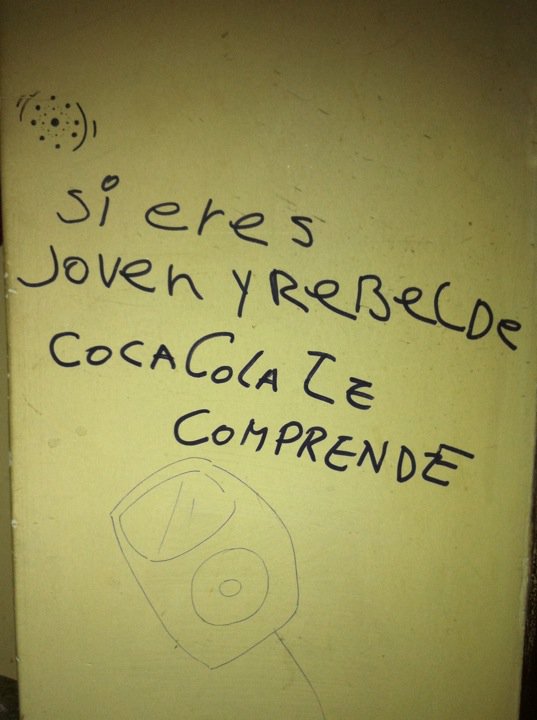 si eres
Joven y ReBeLDe
COCA COLA TE
COMPRENDE